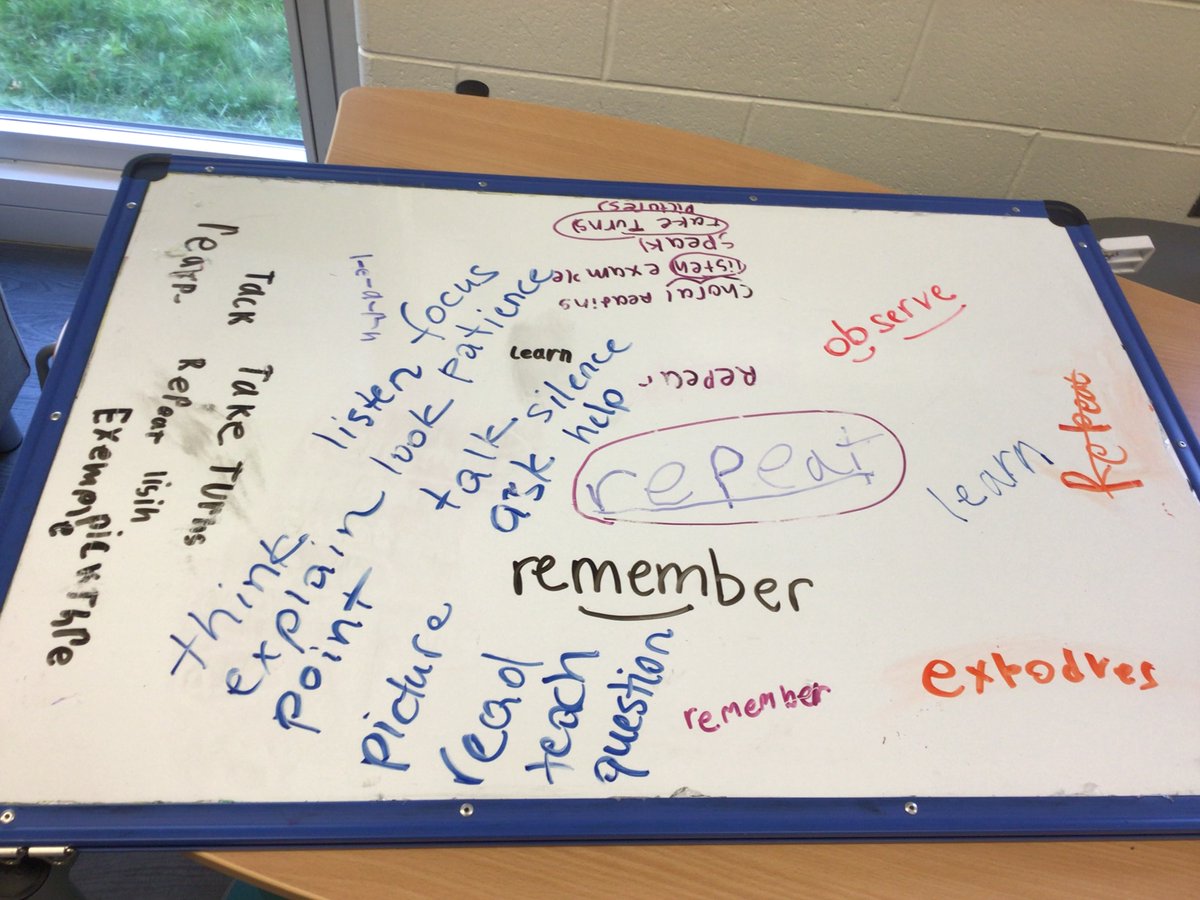 PICTURES)
take Turns)
Speak)
listen example
choral reading
Repear
observe
Repeat
learn
repeat
remember
remember
expodres
listen focus
look patience
learn
talk silence
ask help
think
explain
point
picture
read
teach
question
Tack Take Turns
Repear lisin
Exemple